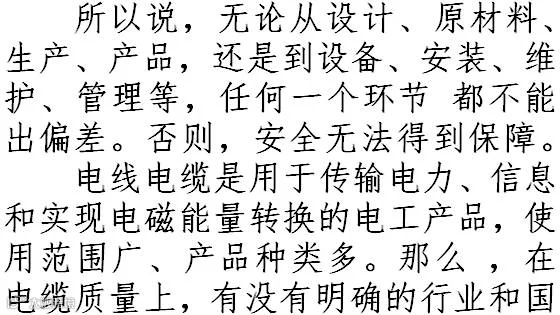 所以说，无论从设计、原材料、
生产、产品，还是到设备、安装、维
护、管理等，任何一个环节 都不能
出偏差。否则，安全无法得到保障。
电线电缆是用于传输电力、信息
和实现电磁能量转换的电工产品，使
用范围广、产品种类多。那么 ，在
电缆质量上，有没有明确的行业和国